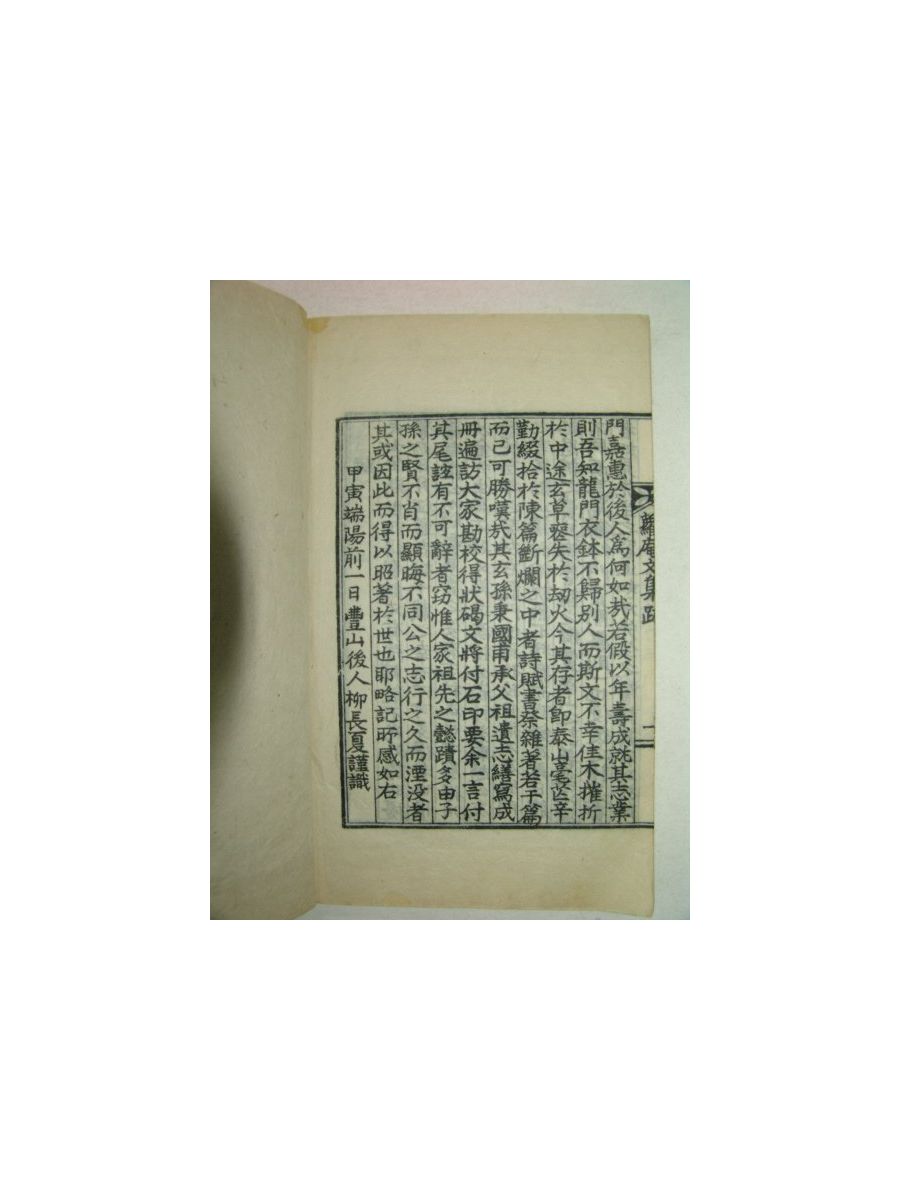 庵文集跋
門嘉惠於後人爲何如㢤若假以年壽成就其志業
則吾知龍門衣鉢不歸別人而斯文不幸佳木摧折
於中途玄草喪失於劫火今其存者卽泰山毫芒辛
勤綴拾於陳篇斷爛之中者詩賦書祭雜著若干篇
而已可勝嘆㢤其玄孫秉國甫承父祖遺志繕寫成
冊遍訪大家勘校得狀碣文將付石印要余一言付
其尾誼有不可辭者窃惟人家祖先之懿蹟多由子
孫之賢不肖而顯晦不同公之志行之久而湮没者
其或因此而得以昭著於世也耶略記所感如右
甲寅端陽前一日豊山後人柳長夏謹識